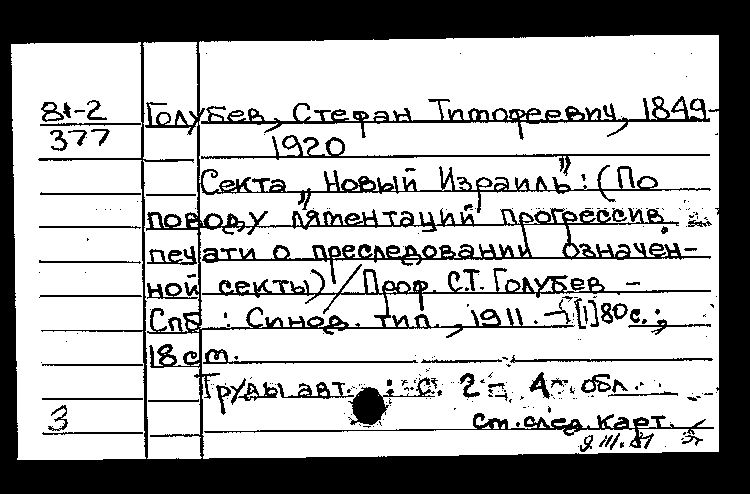 81-2
377
Голубев, Стефан Тимофеевич, 1849-
1920
Секта „Новый Израиль": (По
поводу ляментаций прогрессив.
печати о преследовании означен-
ной секты) / Проф. С.Т. Голубев –
Спб : Синод. тип., 1911. – [1] 80 с.;
18 см.
Труды авт. : с. 2 – 4 обл.
См. след. карт.
3
9.III.81